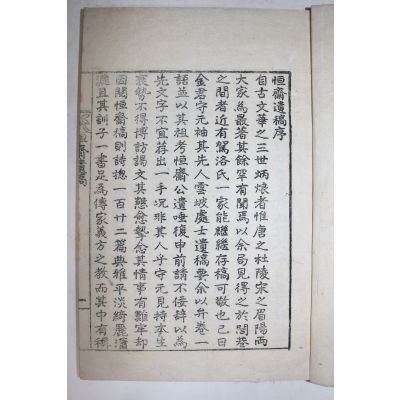 恒齋遺稿序
自古文華之三世炳烺者惟唐之杜陵宋之眉陽兩
大家為最著其餘罕有聞焉以余局見得之於閭巷
之間者近有駕洛氏一家能繼繼存稿可敬也已日
金君守元袖其先人雲坡處士遺稿要余以弁卷一
語並以其祖考恒齋公遺唾復申前請不佞辭以為
先文字不宜蕆出一手況非其人乎守元見持本生
衰勢不得博訪謁文其懇愈摯念其情事有難牢却
因閱恒齋稿則詩總一百廿二篇典雅平淡綺麗
且其訓子一書足為傳家義方之教而其中有稱